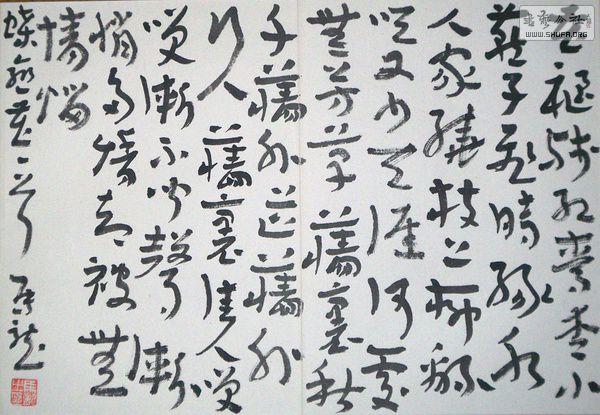 花褪殘紅青杏小
燕子飛時綠水
人家繞枝上柳綿
吹又少天涯何處
無芳草牆裏秋
千牆外道牆外
行人牆裏佳人笑
笑漸不聞聲漸
悄多情却被無
情惱
蝶戀花一首
書藝公社
WWW.SHUFA.ORG